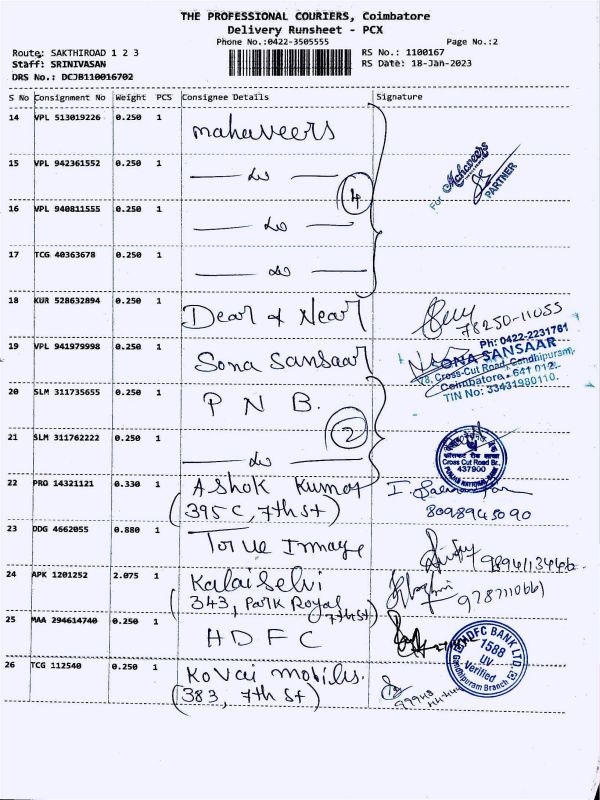 THE PROFESSIONAL COURIERS, Coimbatore
Delivery Runsheet - PCX
Phone No.:0422-3505555 Page No.:2
Route: SAKTHIROAD 1 2 3 RS No.: 1100167
Staff: SRINIVASAN RS Date: 18-Jan-2023
DRS No.: DCJB110016702
S No Consignment No Weight PCS Consignee Details Signature
14 VPL 513019226 0.250 1 mahaveers
For Mahaveers
PARTNER
15 VPL 942361552 0.250 1 — do —
4
16 VPL 940811555 0.250 1 — do —
17 TCG 40363678 0.250 1 — do —
18 KUR 528632894 0.250 1 Dear & Near
78250-11055
19 VPL 941979998 0.250 1 Sona Sansaar
Ph: 0422-2231761
SONA SANSAAR
78, Cross-Cut Road, Gandhipuram,
Coimbatore - 641 012.
TIN No: 33431980110.
20 SLM 311735655 0.250 1 P N B.
2
21 SLM 311762222 0.250 1 — do —
क्रॉसकट रोड शाखा
Cross Cut Road Br.
437900
PUNJAB NATIONAL BANK
22 PRG 14321121 0.330 1 Ashok Kumar
(395 C, 7th St)
8098945090
23 DDG 4662055 0.880 1 Torue Image
24 APK 1201252 2.075 1 Kalaiselvi
(343, Park Royal
7th St)
25 MAA 294614740 0.250 1 H D F C
HDFC BANK LTD
1588
UV
Verified
Gandhipuram Branch
26 TCG 112540 0.250 1 Kovai mobiles.
(383, 7th St)